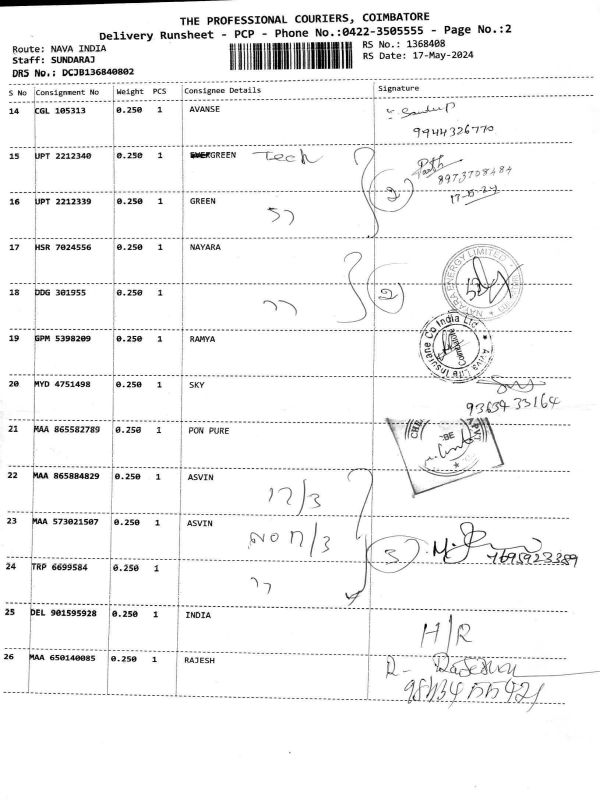 THE PROFESSIONAL COURIERS, COIMBATORE
Delivery Runsheet - PCP - Phone No.:0422-3505555 - Page No.:2
Route: NAVA INDIA
RS No.: 1368408
Staff: SUNDARAJ
RS Date: 17-May-2024
DRS No.: DCJB136840802
S No Consignment No Weight PCS Consignee Details Signature
14 CGL 105313 0.250 1 AVANSE
9944326770
15 UPT 2212340 0.250 1 EVERGREEN Tech
8973708484
17-5-24
16 UPT 2212339 0.250 1 GREEN
2
17 HSR 7024556 0.250 1 NAYARA
NAYARA ENERGY LIMITED
18 DDG 301955 0.250 1
2
19 GPM 5398209 0.250 1 RAMYA
Aviva Life Insurance Co India Ltd
Coimbatore
20 MYD 4751498 0.250 1 SKY
9363433164
21 MAA 865582789 0.250 1 PON PURE
22 MAA 865884829 0.250 1 ASVIN
17/3
23 MAA 573021507 0.250 1 ASVIN
3
7695923359
24 TRP 6699584 0.250 1
25 DEL 901595928 0.250 1 INDIA
H/R
26 MAA 650140085 0.250 1 RAJESH
R-